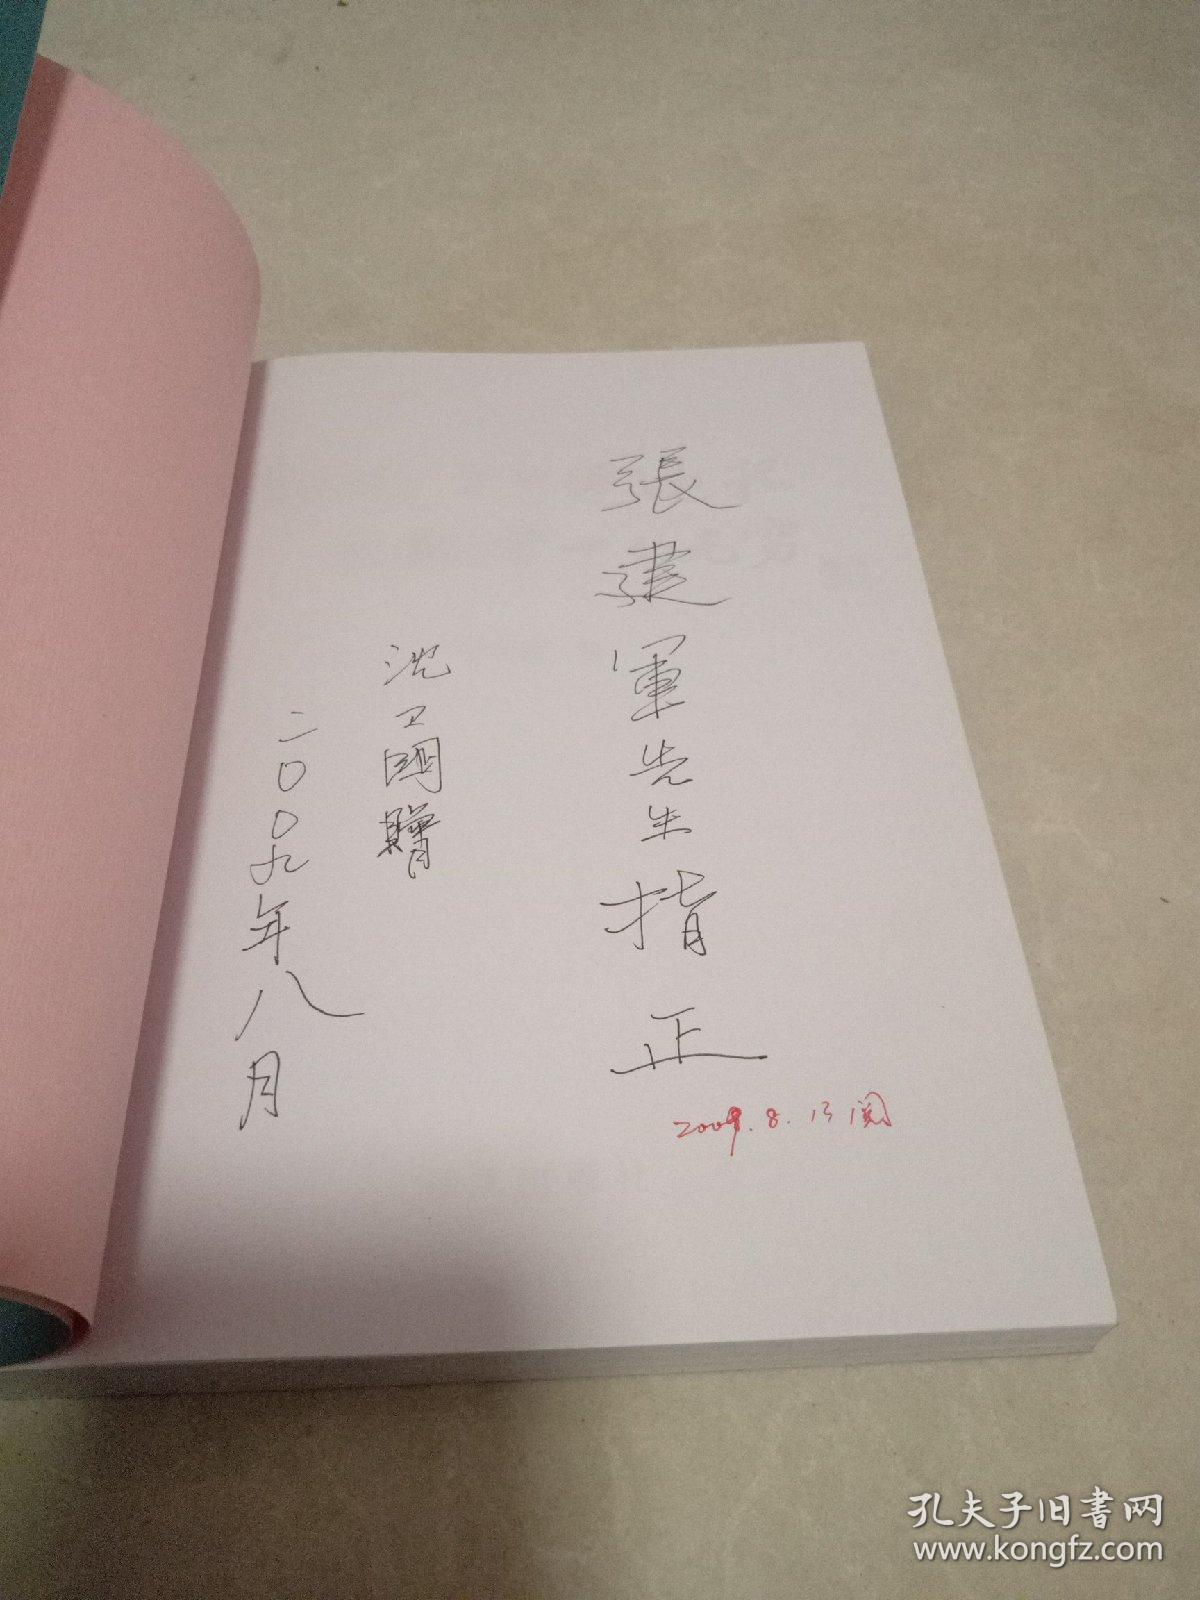 張建軍先生指正
沈卫國贈
二〇〇九年八月
2009.8.13阅
孔夫子旧书网
www.kongfz.com